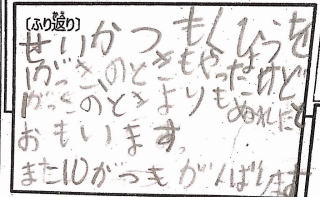 〔ふり返り〕
せいかつもくひょうを
1がっきのときもやったけど
1がっきのときよりも
おもいます。
また10がつもがんばります